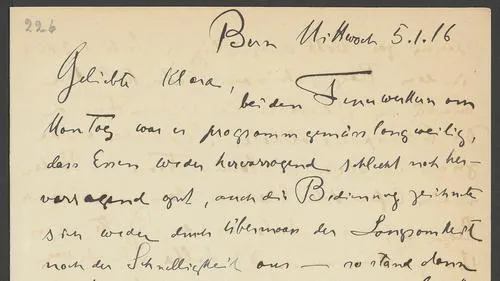 226
Bern Mittwoch 5.1.16
Geliebte Klara,
bei den
Montag war es programmgemäss langweilig,
dass Essen weder hervorragend schlecht noch her-
vorragend gut, auch die Bedienung zeichnete
sich weder durch Übermaass der Langsamkeit
noch der Schnelligkeit aus — so stand denn